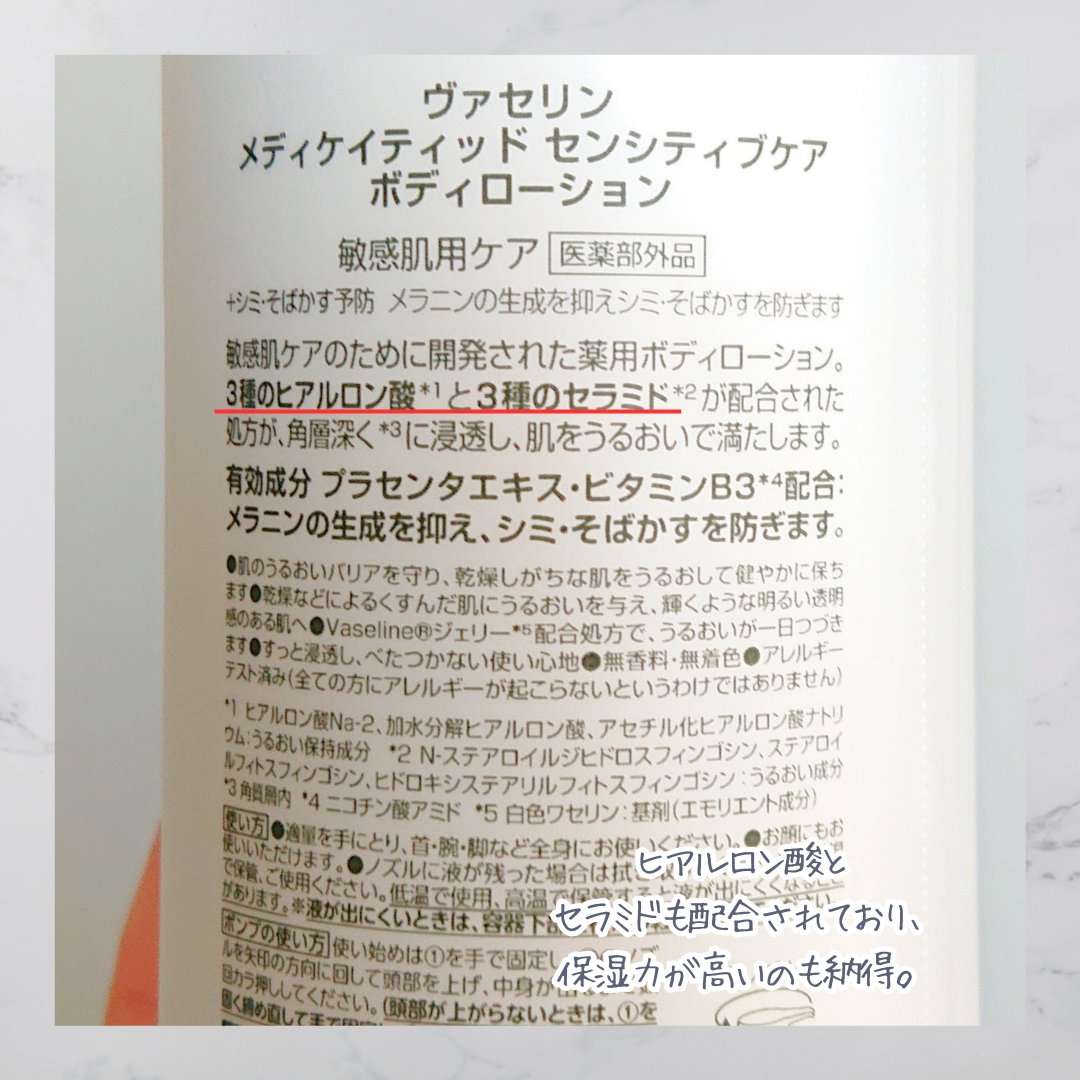 ヴァセリン
メディケイティッド センシティブケア
ボディローション
敏感肌用ケア 医薬部外品
+シミ・そばかす予防 メラニンの生成を抑えシミ・そばかすを防ぎます
敏感肌ケアのために開発された薬用ボディローション。
3種のヒアルロン酸*1と3種のセラミド*2が配合された
処方が、角層深く*3に浸透し、肌をうるおいで満たします。
有効成分 プラセンタエキス・ビタミンB3*4配合:
メラニンの生成を抑え、シミ・そばかすを防ぎます。
●肌のうるおいバリアを守り、乾燥しがちな肌をうるおして健やかに保ち
ます●乾燥などによるくすんだ肌にうるおいを与え、輝くような明るい透明
感のある肌へ●Vaseline®ジェリー*5配合処方で、うるおいが一日つづき
ます●すっと浸透し、べたつかない使い心地●無香料・無着色●アレルギー
テスト済み(全ての方にアレルギーが起こらないというわけではありません)
*1 ヒアルロン酸Na-2、加水分解ヒアルロン酸、アセチル化ヒアルロン酸ナトリ
ウム:うるおい保持成分 *2 N-ステアロイルジヒドロスフィンゴシン、ステアロイ
ルフィトスフィンゴシン、ヒドロキシステアリルフィトスフィンゴシン:うるおい成分
*3 角質層内 *4 ニコチン酸アミド *5 白色ワセリン:基剤(エモリエント成分)
使い方 ●適量を手にとり、首・腕・脚など全身にお使いください。●お顔にもお
使いいただけます。●ノズルに液が残った場合は拭
で保管、ご使用ください。低温で使用、高温で保管すると液が出にくくなること
があります。※液が出にくいときは、容器下部
ポンプの使い方 使い始めは①を手で固定し
ルを矢印の方向に回して頭部を上げ、中身が出
回カラ押ししてください。(頭部が上がらないときは、①を
固く締め直して手で固定
ヒアルロン酸と
セラミドも配合されており、
保湿力が高いのも納得。